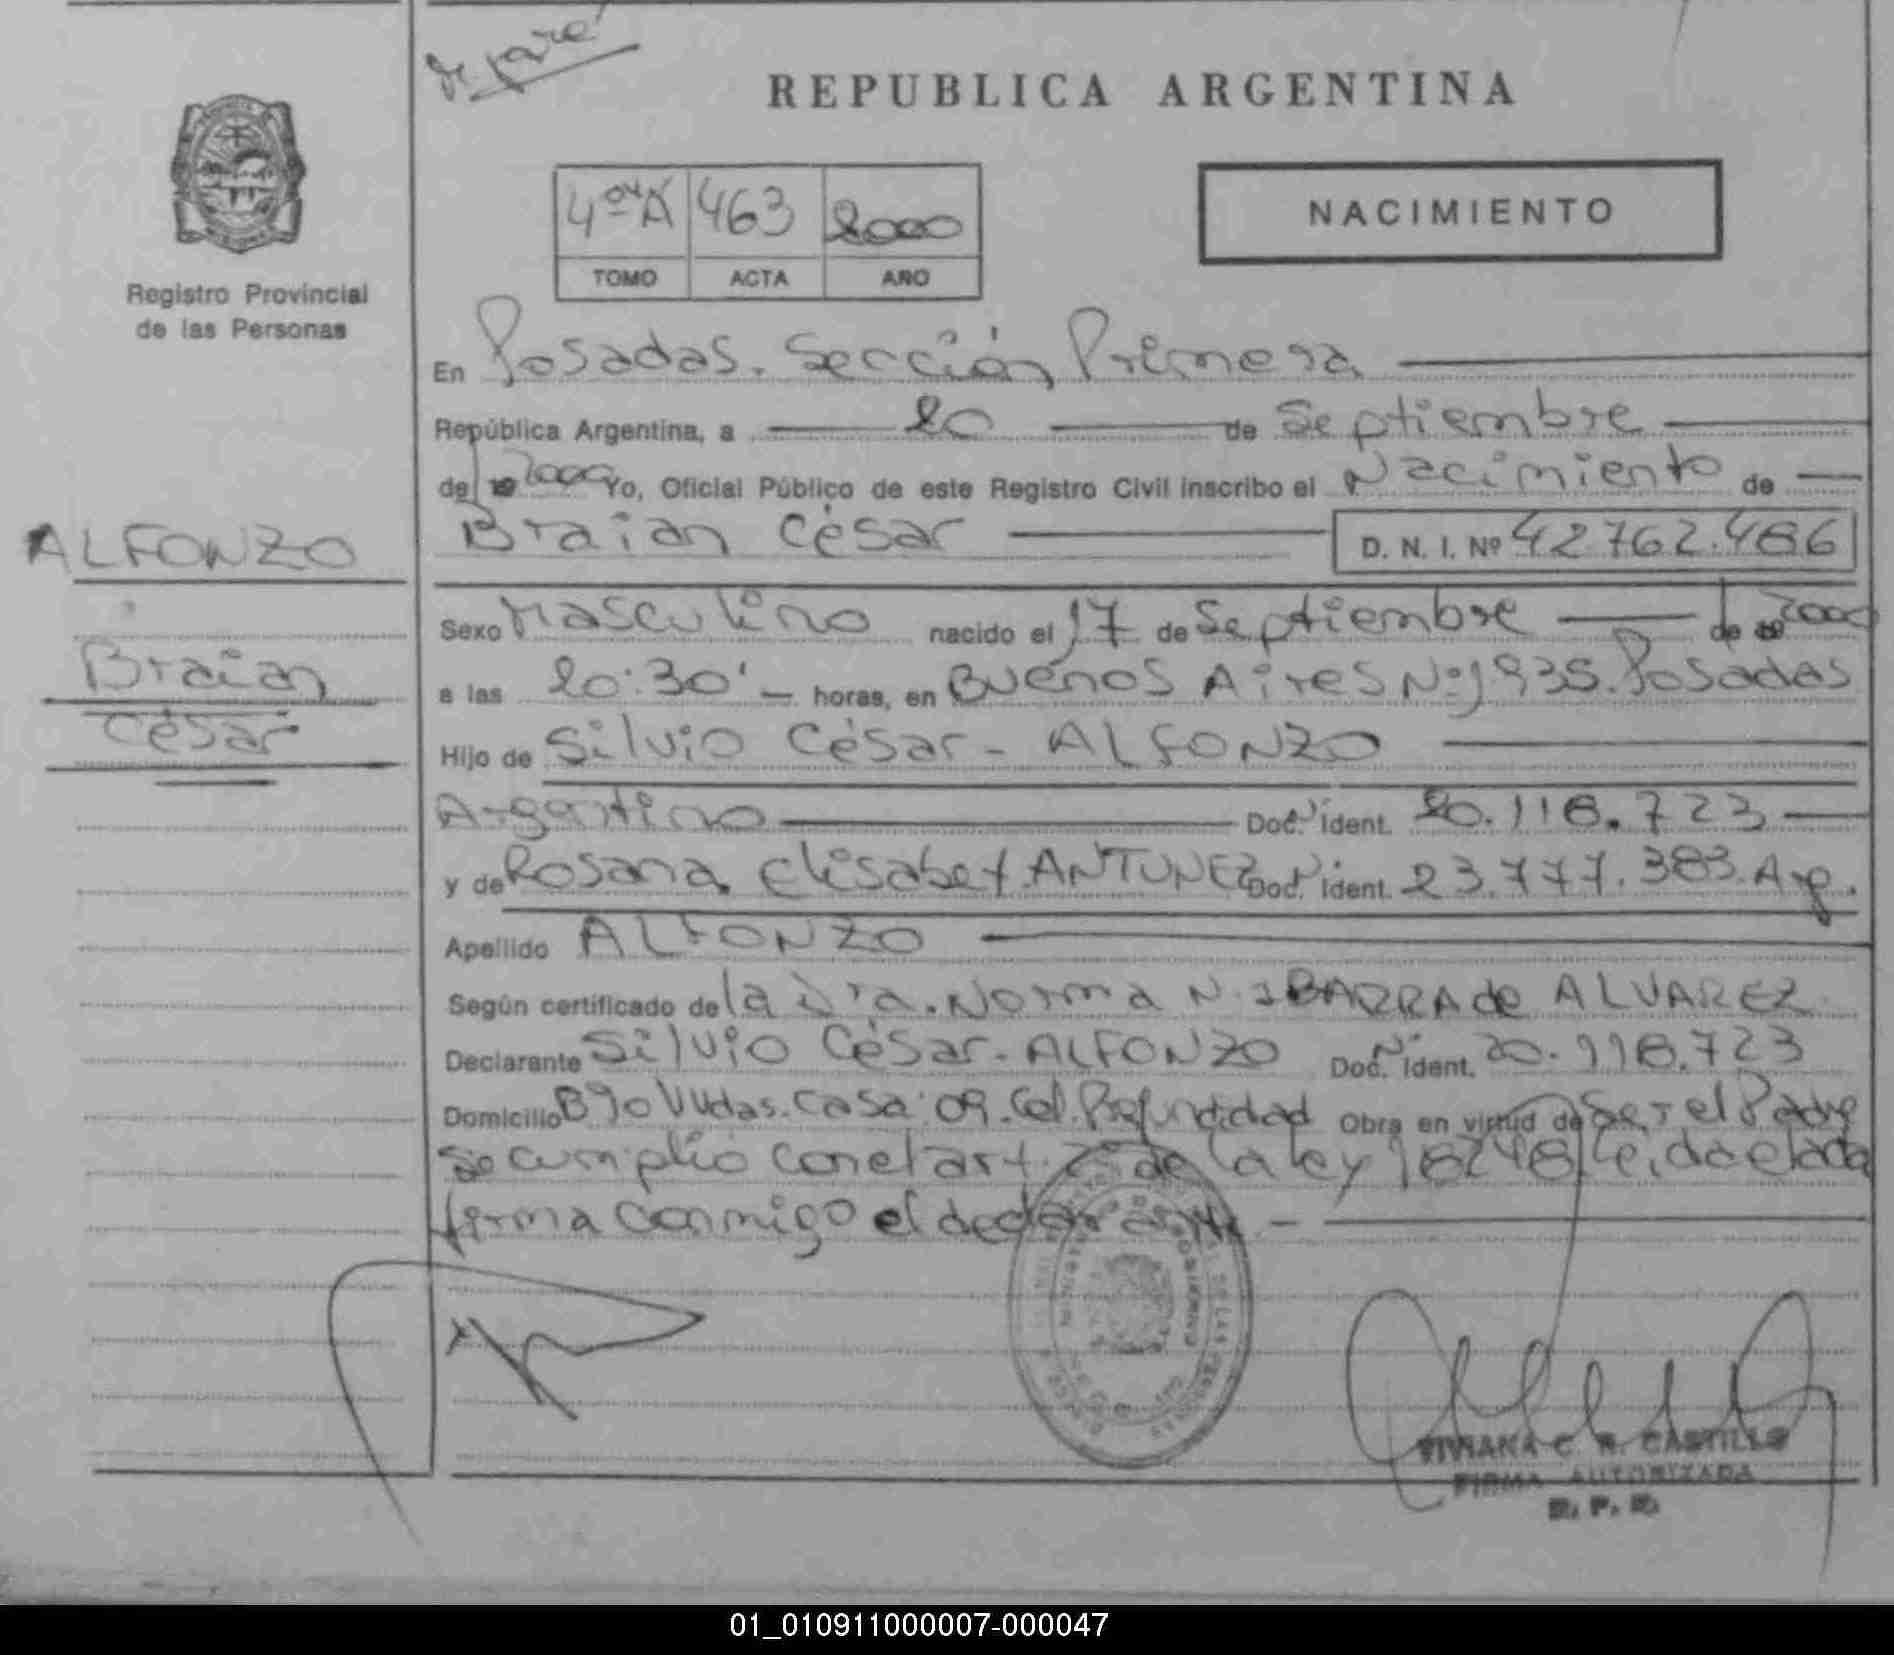 REPUBLICA ARGENTINA
4º A 463 2000
TOMO ACTA AÑO
NACIMIENTO
Registro Provincial
de las Personas
En Posadas. Sección Primera
República Argentina, a 20 de Septiembre
de 2000 Yo, Oficial Público de este Registro Civil inscribo el Nacimiento de
Braian César D. N. I. Nº 42762.486
ALFONZO
Braian
César
Sexo Masculino nacido el 17 de Septiembre de 2000
a las 20:30'- horas, en Buenos Aires Nº 1935. Posadas
Hijo de Silvio César - ALFONZO
Argentino Doc. ident. 20.118.723
y de Rosana Elisabet ANTUNEZ Doc. ident. 23.777.383. Arg.
Apellido ALFONZO
Según certificado de la Dra. Norma N. IBARRA de ALVAREZ
Declarante Silvio César. ALFONZO Doc. ident. 20.118.723
Domicilio Bº Vvdas. Casa: 09. Cel. Obra en virtud de Ser el Padre
Se cumplió con el art. 2º de la ley 18248 Leida el acta
firma conmigo el declarante -
VIVIANA C. R. CASTILLO
FIRMA AUTORIZADA
R. P. P.
01_010911000007-000047